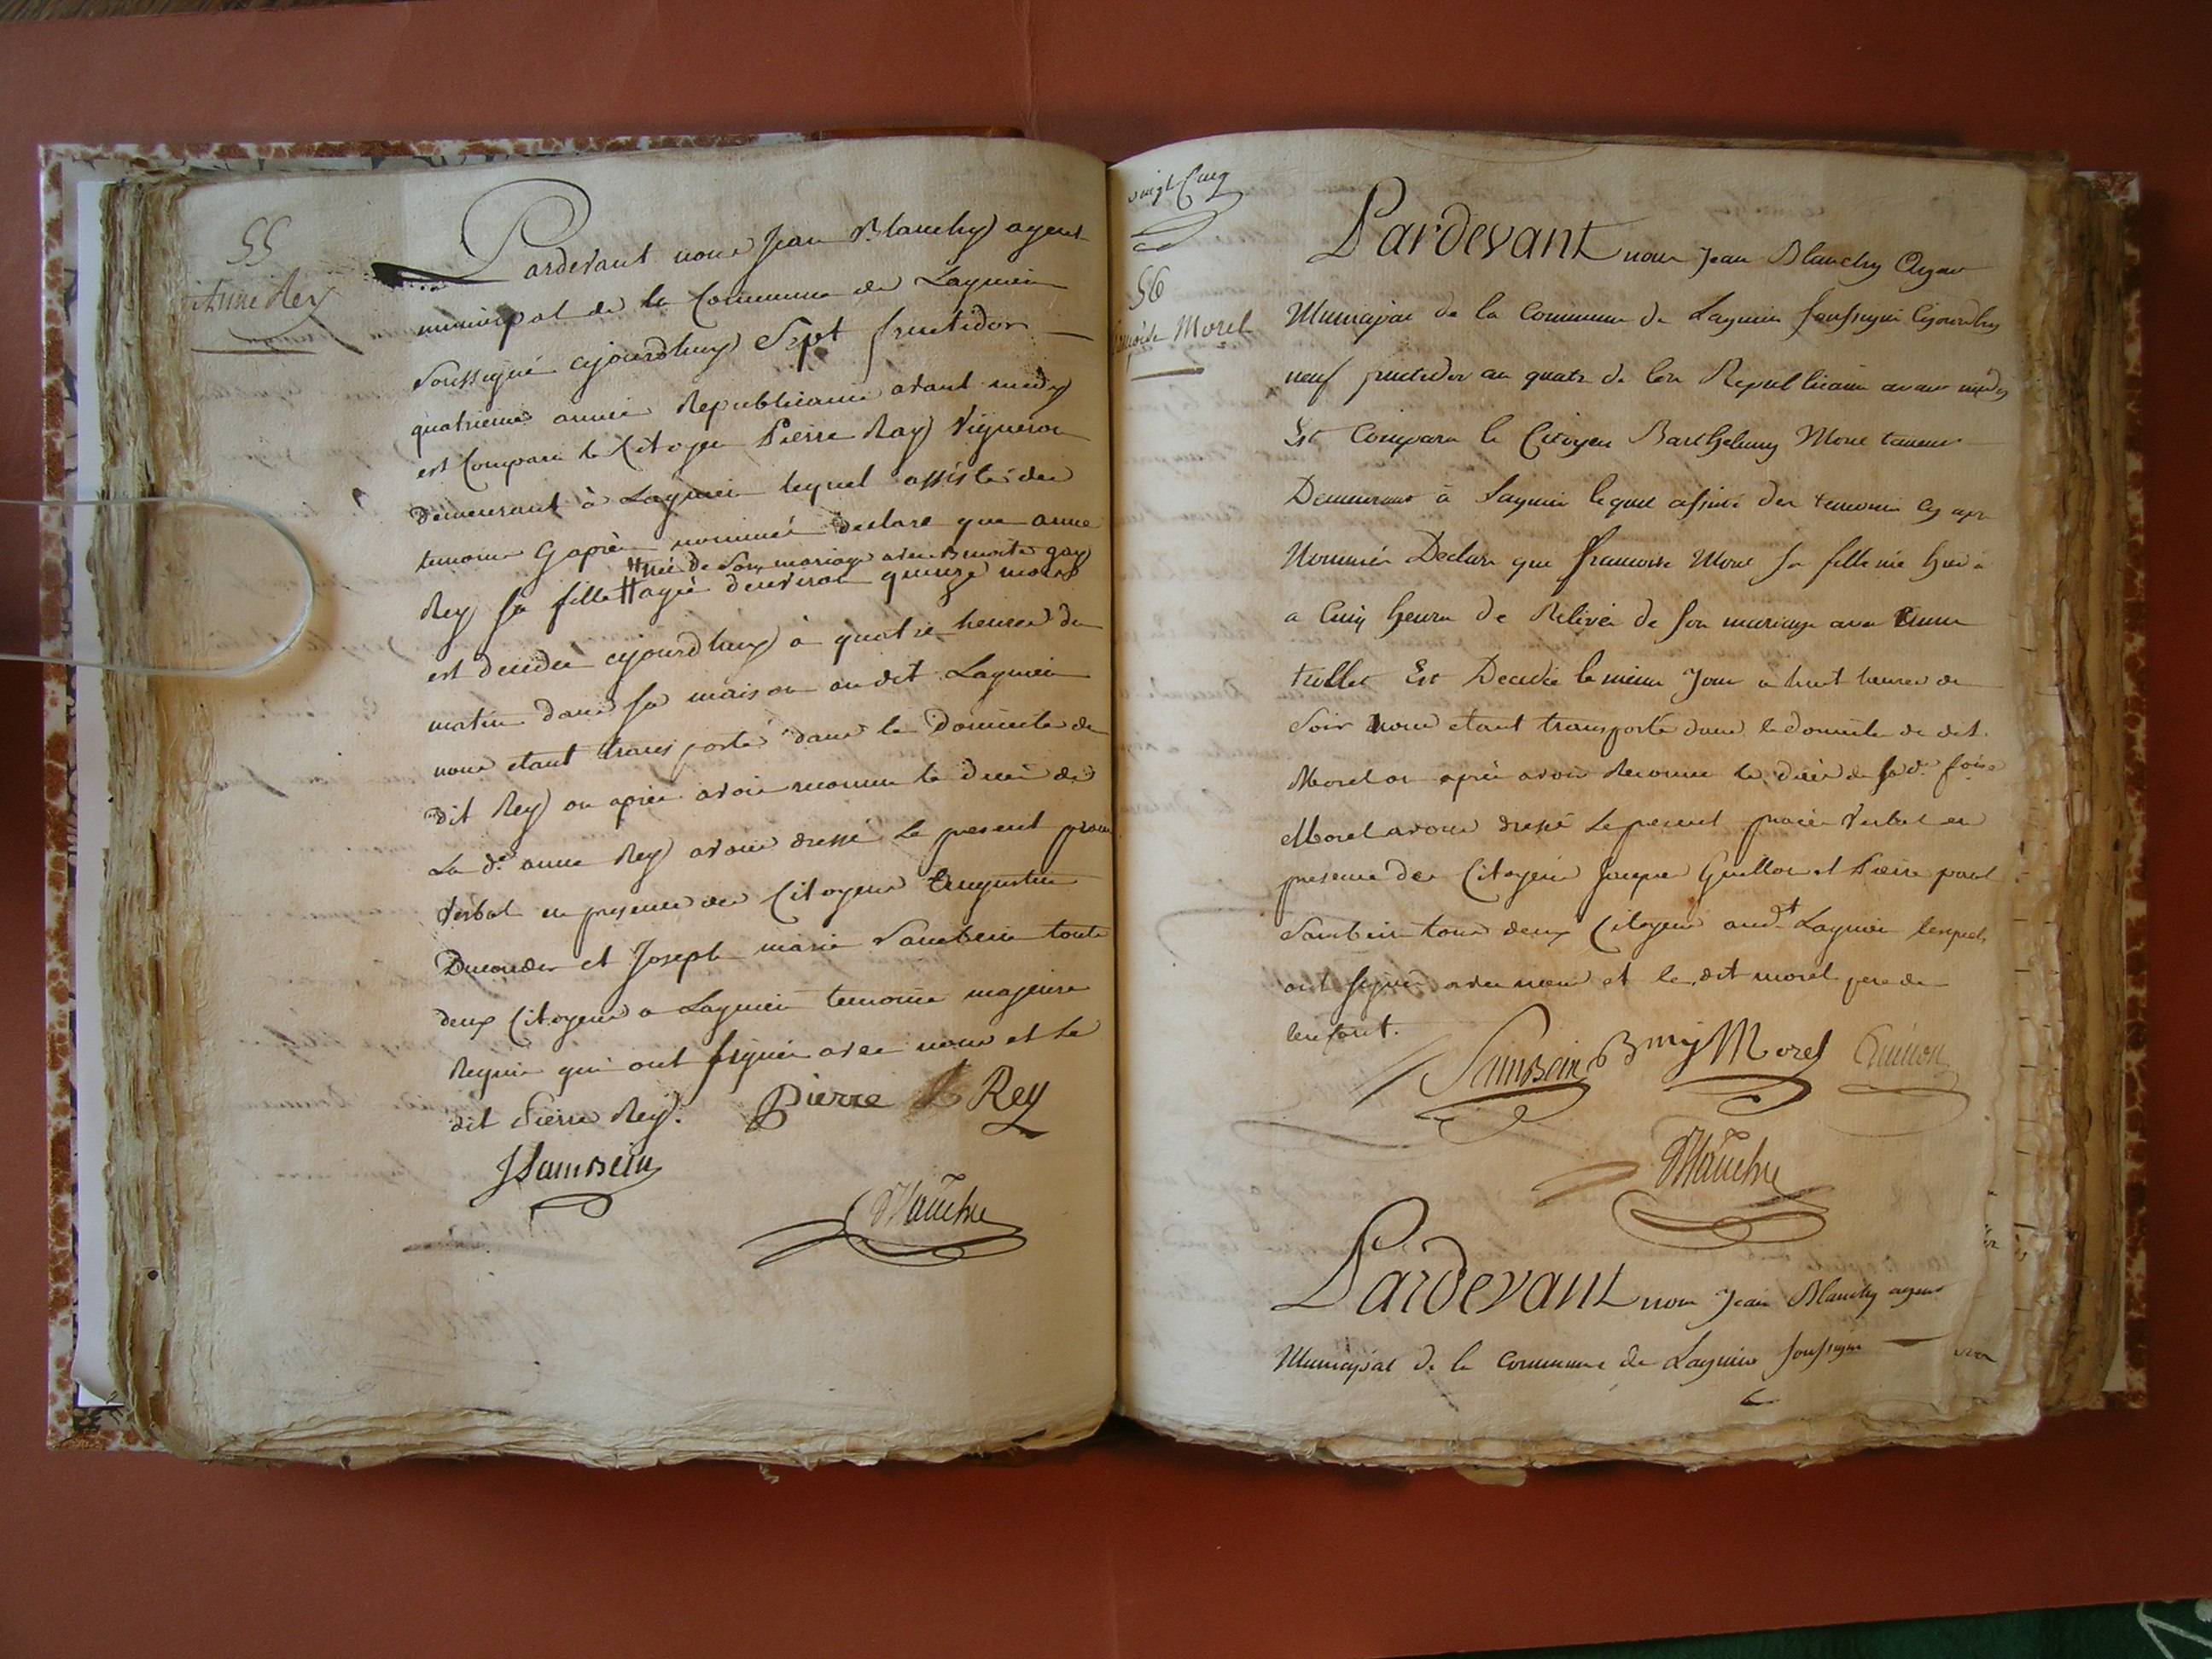 55
Anne Rey
Pardevant nous Jean Blanchy agent
municipal de la Commune de Lagnieu
Soussigné cejourdhuy Sept fructidor
quatrieme année Republicaine avant midy
est Comparu le Citoyen Pierre Rey Vigneron
demeurant à Lagnieu lequel assisté des
temoins cy après nommés declare que anne
née de Son mariage avec Benoite gay
Rey sa fille agée denviron quinze mois
est decedee cejourdhuy à quatre heures du
matin dans sa maison au dit Lagnieu
nous etant transporté dans le Domicile du
dit Rey ou après avoir reconnu le decès de
La de. anne Rey avons dressé le present procès
Verbal en presence des Citoyens augustin
et Joseph marie Sambein touts
deux Citoyens a Lagnieu temoins majeurs
Requis qui ont signés avec nous et le
dit Pierre Rey.
Pierre Rey
JSambein
Blanchy
vingt Cinq
56
Morel
Pardevant nous Jean Blanchy Agent
Municipal de la Commune de Lagnieu soussigné Cejourdhuy
neuf fructidor an quatre de lere Republicaine avant midy
Est Comparu le Citoyen Barthelemy Morel tanneur
Demeurant à Lagnieu lequel assisté des temoins cy apres
Nommés Declare que francoise Morel sa fille née hier
a Cinq heures de Relivée de son mariage avec anne
trollet Est Decedée le meme Jour a huit heures du
Soir nous etant transporté dans le domicile du dit
Morel ou après avoir reconnu le décès de lad. foise
Morel avons dressé le present procès Verbal en
presence des Citoyens Jacques Guillon et Pierre paul
Sambein tous deux Citoyens aud.t Lagnieu lesquels
ont signés avec nous et le dit morel pere de
lenfant.
Sambein Bmy Morel Guillon
Blanchy
Pardevant nous Jean Blanchy agent
Municipal de la Commune de Lagnieu soussigné